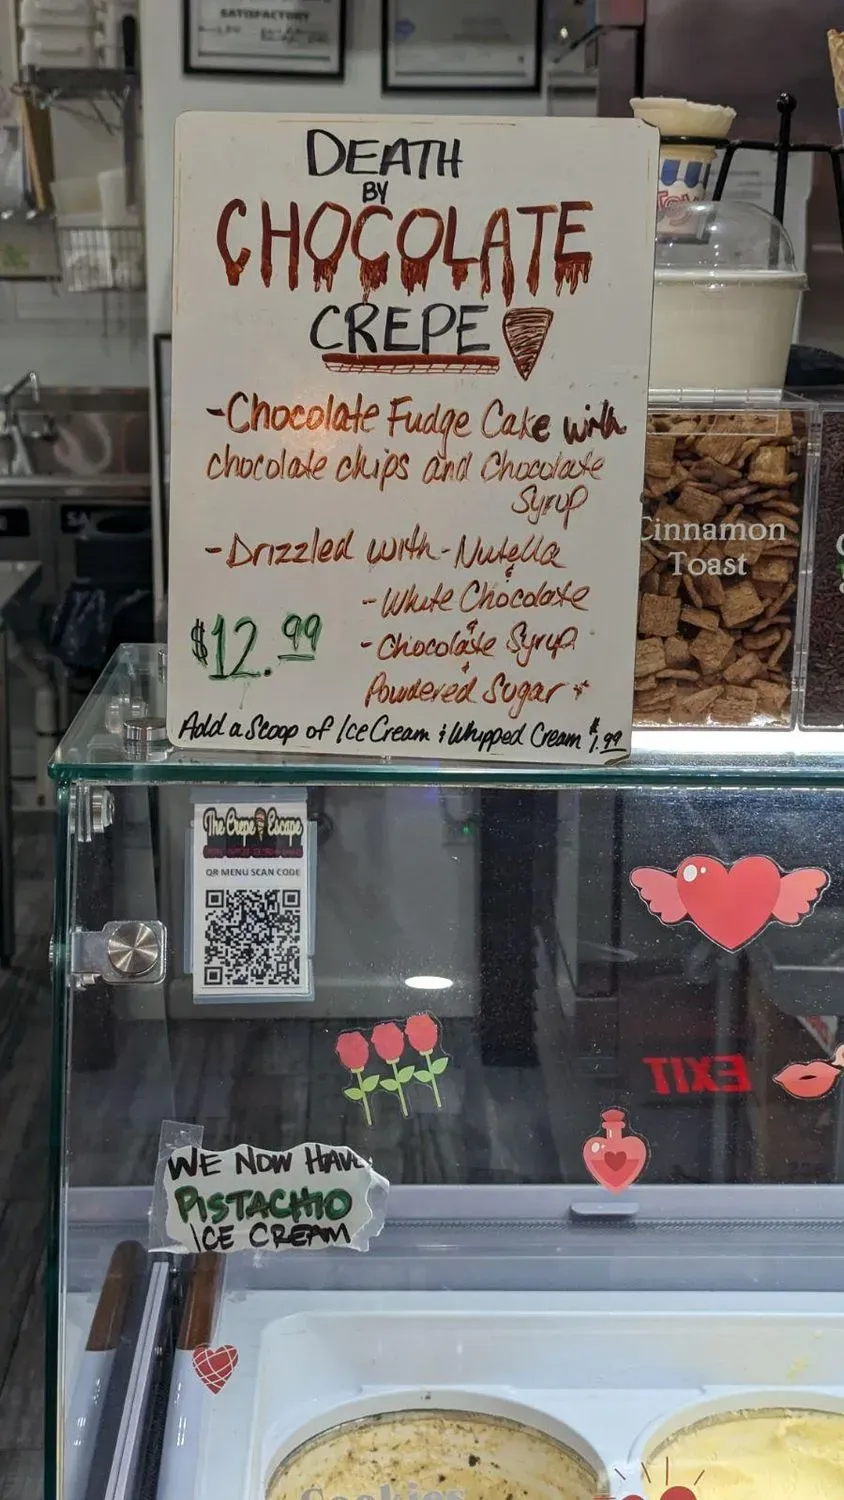 SATISFACTORY
DEATH
BY
CHOCOLATE
CREPE
-Chocolate Fudge Cake with
chocolate chips and Chocolate
Syrup
-Drizzled with - Nutella
&
- White Chocolate
&
- Chocolate Syrup
+
Powdered Sugar +
$12.99
Add a Scoop of Ice Cream & Whipped Cream $1.99
Cinnamon
Toast
The Crepe Escape
QR MENU SCAN CODE
EXIT
WE NOW HAVE
PISTACHIO
ICE CREAM
Cookies